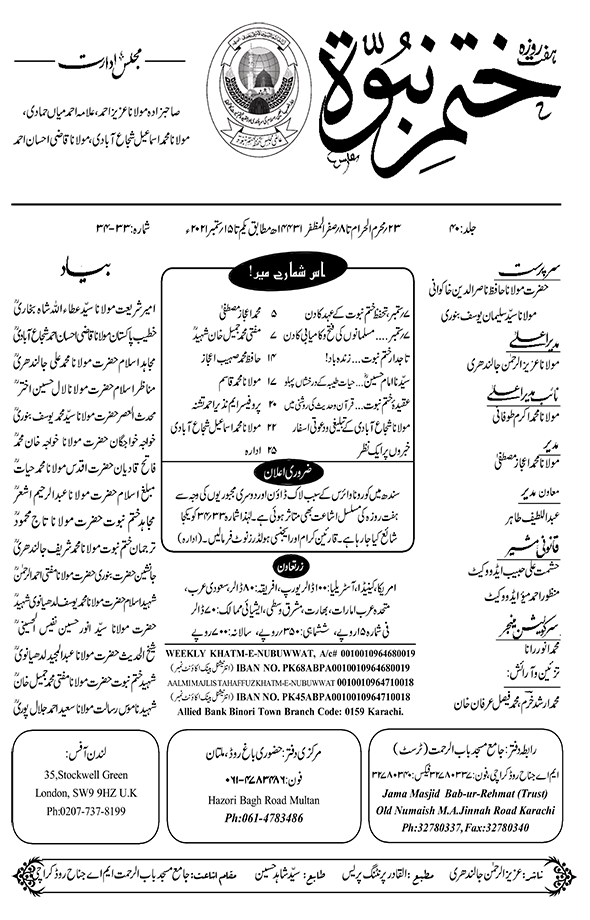 ہفت روزہ
ختم نبوۃ
مجلس ادارت
صاحبزادہ مولانا عزیز احمد، علامہ احمد میاں حمادی،
مولانا محمد اسماعیل شجاع آبادی، مولانا قاضی احسان احمد
جلد: ۴۰
۲۳ محرم الحرام تا ۸ صفر المظفر ۱۴۴۳ھ مطابق یکم تا ۱۵ ستمبر ۲۰۲۱ء
شمارہ: ۳۳-۳۴
سرپرست
حضرت مولانا حافظ ناصر الدین خاکوانی
مولانا سید سلیمان یوسف بنوری
مدیر اعلیٰ
مولانا عزیز الرحمٰن جالندھری
نائب مدیر اعلیٰ
مولانا محمد اکرم طوفانی
مدیر
مولانا محمد اعجاز مصطفیٰ
معاون مدیر
عبداللطیف طاہر
قانونی مشیر
حشمت علی حبیب ایڈووکیٹ
منظور احمد میؤ ایڈووکیٹ
سرکولیشن منیجر
محمد انور رانا
تزئین و آرائش:
محمد ارشد خرم، محمد فیصل عرفان خان
اس شمارے میں!
۷ ستمبر، تحفظ ختم نبوت کے عہد کا دن ۵ محمد اعجاز مصطفیٰ
۷ ستمبر.... مسلمانوں کی فتح و کامیابی کا دن ۷ مفتی محمد جمیل خان شہیدؒ
تاجدار ختم نبوت... زندہ باد! ۱۴ حافظ محمد صہیب اعجاز
سیدنا امام حسینؓ... حیات طیبہ کے درخشاں پہلو ۱۷ مولانا محمد قاسم
عقیدۂ ختم نبوت... قرآن و حدیث کی روشنی میں ۲۰ پروفیسر ایم نذیر احمد تشنہ
مولانا شجاع آبادی کے تبلیغی و دعوتی اسفار ۲۲ مولانا محمد اسماعیل شجاع آبادی
خبروں پر ایک نظر ۲۵ ادارہ
ضروری اعلان
سندھ میں کورونا وائرس کے سبب لاک ڈاؤن اور دوسری مجبوریوں کی وجہ سے
ہفت روزہ کی مسلسل اشاعت بھی متاثر ہوئی ہے۔ لہٰذا شمارہ ۳۴/۳۳ کو یکجا
شائع کیا جا رہا ہے۔ قارئین کرام اور ایجنسی ہولڈرز نوٹ فرمالیں۔ (ادارہ)
زرتعاون
امریکا، کینیڈا، آسٹریلیا: ۱۰۰ ڈالر یورپ، افریقہ: ۸۰ ڈالر، سعودی عرب،
متحدہ عرب امارات، بھارت، مشرق وسطیٰ، ایشیائی ممالک: ۷۰ ڈالر
فی شمارہ ۱۵ روپے، ششماہی: ۳۵۰ روپے، سالانہ: ۷۰۰ روپے
WEEKLY KHATM-E-NUBUWWAT, A/c# 0010010964680019
IBAN NO. PK68ABPA0010010964680019 (انٹرنیشنل بینک اکاؤنٹ نمبر)
AALMIMAJLISTAHAFFUZKHATM-E-NUBUWWAT 0010010964710018
IBAN NO. PK45ABPA0010010964710018 (انٹرنیشنل بینک اکاؤنٹ نمبر)
Allied Bank Binori Town Branch Code: 0159 Karachi.
بیاد
امیر شریعت مولانا سید عطاء اللہ شاہ بخاریؒ
خطیب پاکستان مولانا قاضی احسان احمد شجاع آبادیؒ
مجاہد اسلام حضرت مولانا محمد علی جالندھریؒ
مناظر اسلام حضرت مولانا لال حسین اخترؒ
محدث العصر حضرت مولانا سید محمد یوسف بنوریؒ
خواجہ خواجگان حضرت مولانا خواجہ خان محمدؒ
فاتح قادیان حضرت اقدس مولانا محمد حیاتؒ
مبلغ اسلام حضرت مولانا عبدالرحیم اشعرؒ
مجاہد ختم نبوت حضرت مولانا تاج محمودؒ
ترجمان ختم نبوت مولانا محمد شریف جالندھریؒ
جانشین حضرت بنوری حضرت مولانا مفتی احمد الرحمٰنؒ
شہید اسلام حضرت مولانا محمد یوسف لدھیانوی شہیدؒ
حضرت مولانا سید انور حسین نفیس الحسینیؒ
شیخ الحدیث حضرت مولانا عبدالمجید لدھیانویؒ
شہید ختم نبوت حضرت مولانا مفتی محمد جمیل خانؒ
شہید ناموس رسالت مولانا سعید احمد جلال پوریؒ
رابطہ دفتر: جامع مسجد باب الرحمت (ٹرسٹ)
ایم اے جناح روڈ کراچی، فون: ۳۲۷۸۰۳۳۷ فیکس: ۳۲۷۸۰۳۴۰
Jama Masjid Bab-ur-Rehmat (Trust)
Old Numaish M.A.Jinnah Road Karachi
Ph:32780337,Fax:32780340
مرکزی دفتر: حضوری باغ روڈ، ملتان
فون: ۰۶۱-۴۷۸۳۴۸۶
Hazori Bagh Road Multan
Ph:061-4783486
لندن آفس:
35,Stockwell Green
London, SW9 9HZ U.K
Ph:0207-737-8199
ناشر: عزیز الرحمٰن جالندھری مطبع: القادر پرنٹنگ پریس طابع: سید شاہد حسین مقام اشاعت: جامع مسجد باب الرحمت ایم اے جناح روڈ کراچی